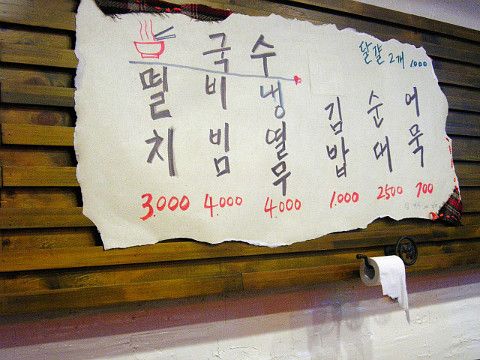 국수
달걀 2개 1,000
멸치
비빔
냉열무
김밥
순대
어묵
3.000 4.000 4.000 1.000 2500 700